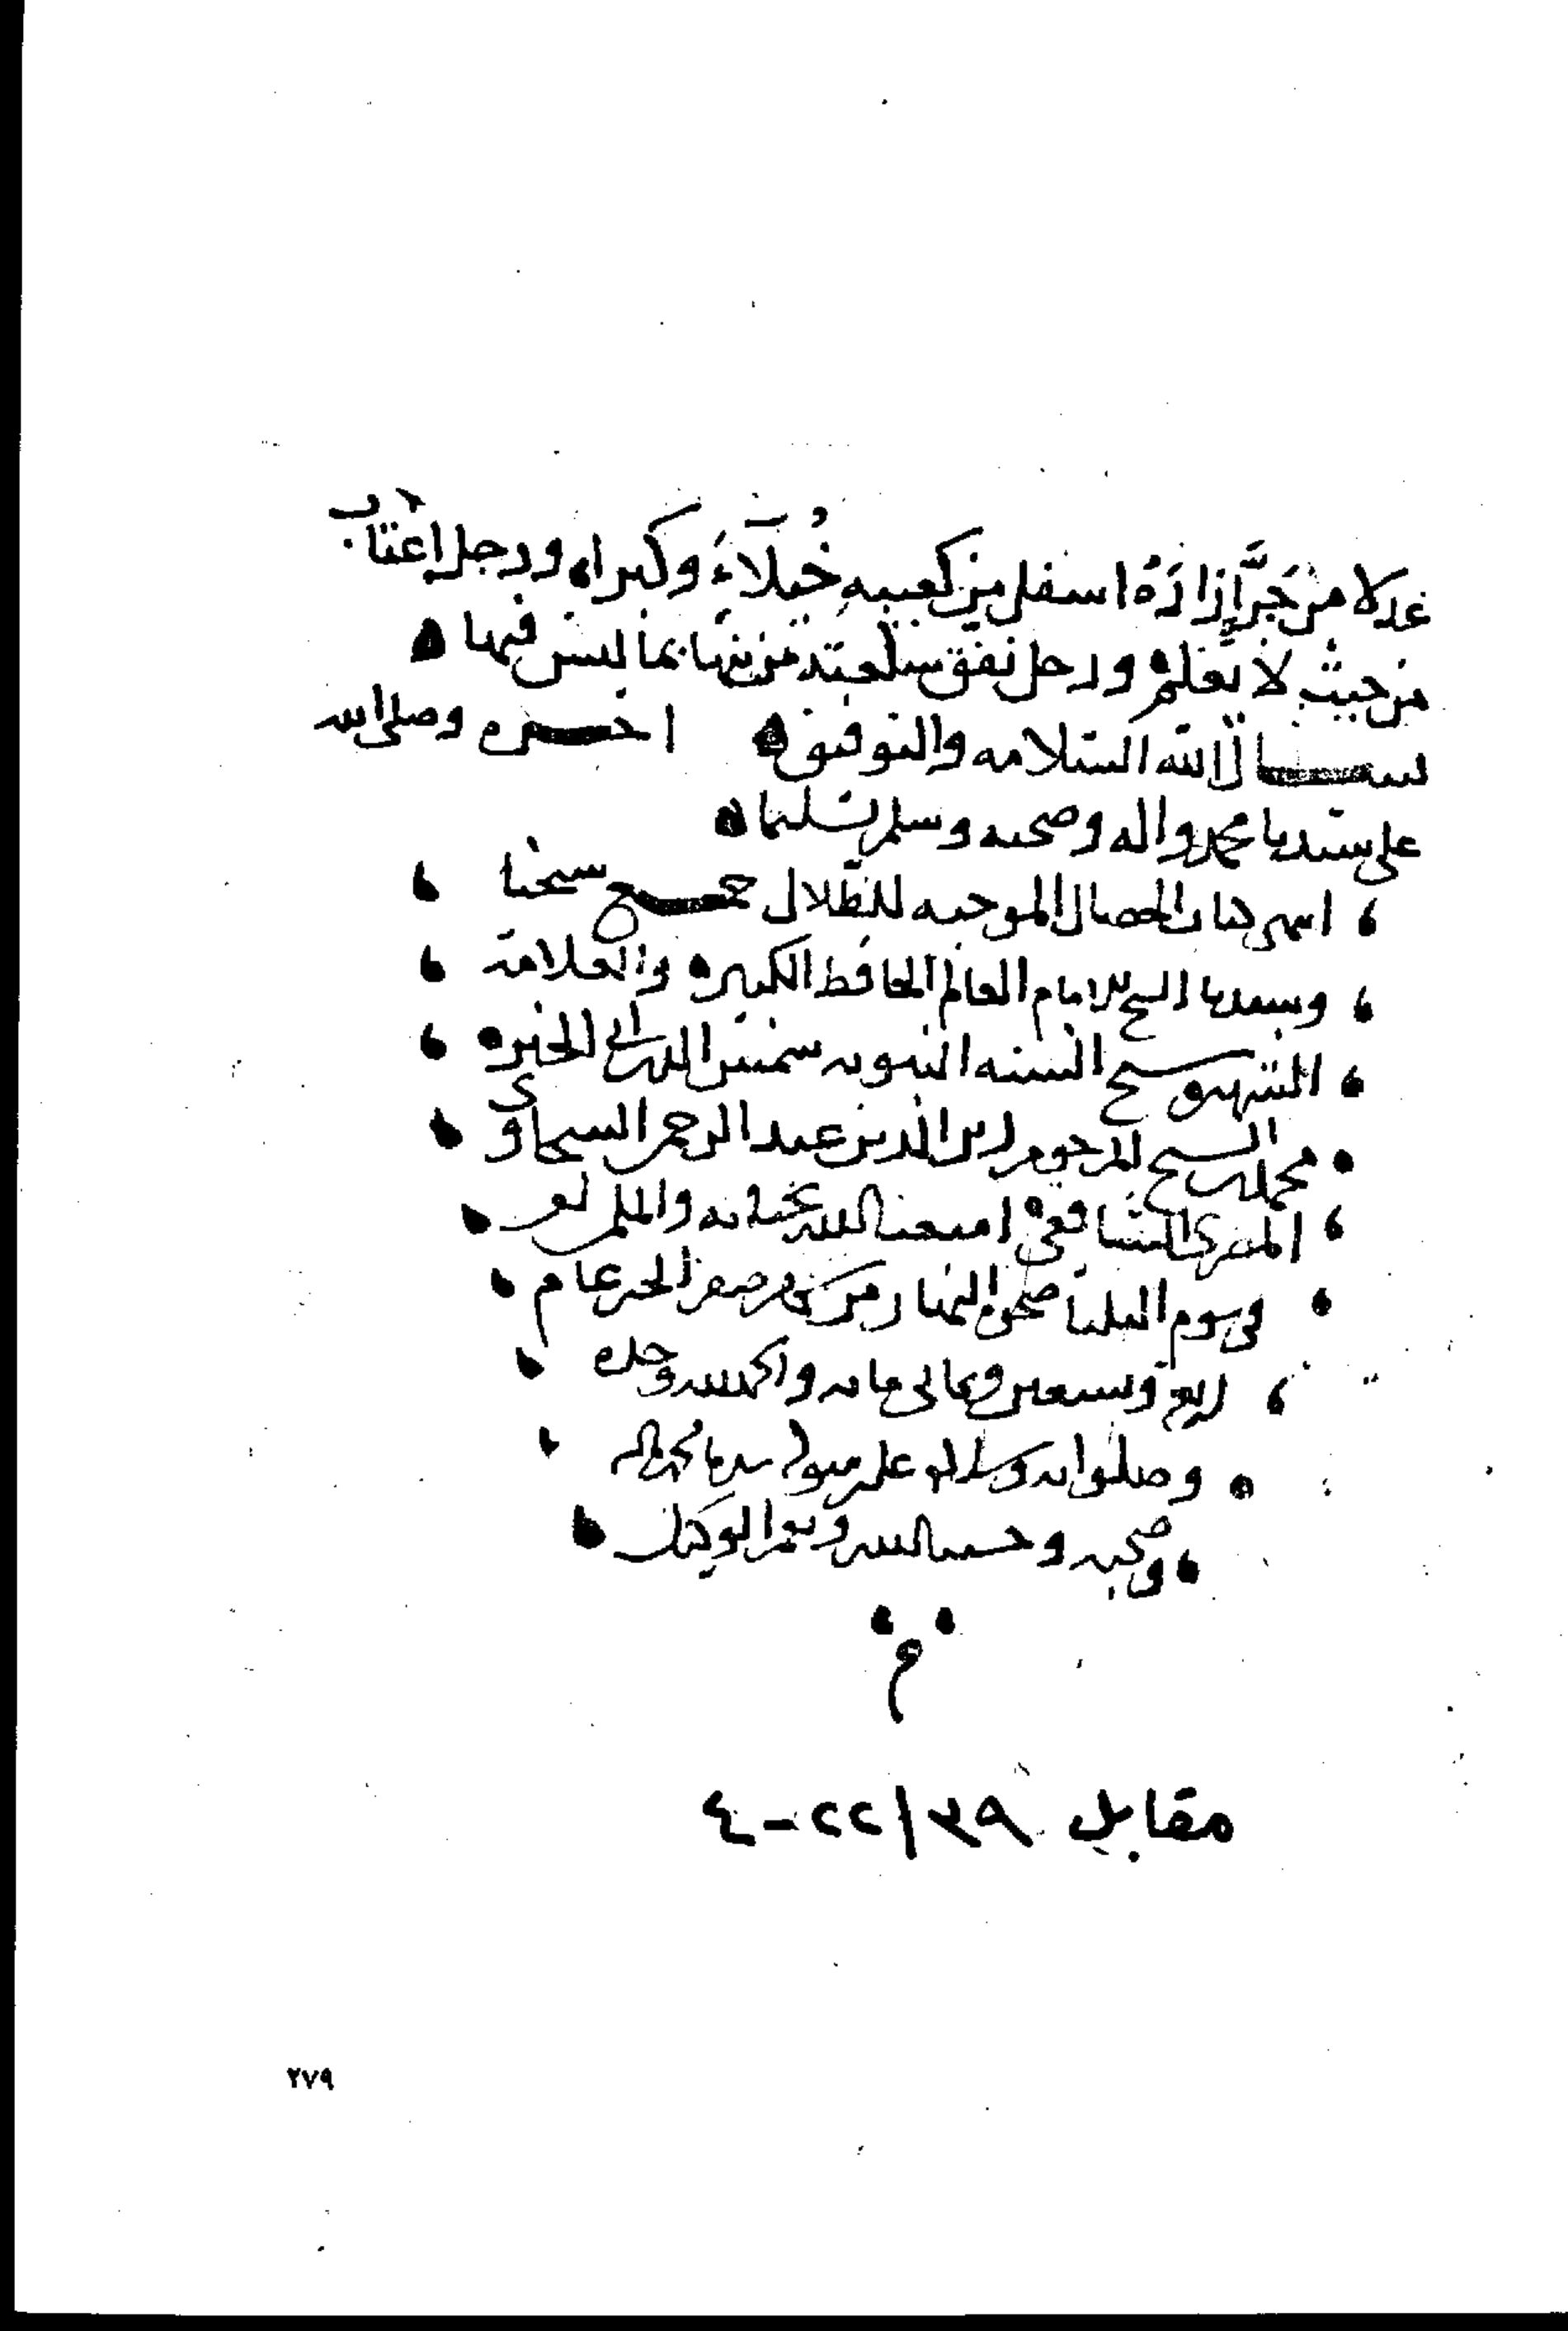 عدلا من جَرَّ إزارَهُ اسفل من كعبيهِ خُيَلآءَ وكبرا، ورجل اغتاب
من حيث لا يعلم ورجل نفق سلعته من نفسها بما ليس فيها
نسـال الله السلامه والتوفيق اخـره وصلى الله
على سيدنا محمد واله وصحبه وسلم تسليما
انتهى كتاب الخصال الموجبه للظلال جمـع شيخنا
وسيدنا الشيخ الامام العالم الحافظ الكبير والعلامة
الشهير شيخ السنه النبويه شمس الدين ابي الخير
محمد بن الشيخ المرحوم زين الدين عبد الرحمن السخاوي
المصري الشافعي امتعنا الله بحياته والمسلمين
في يوم الثلثا ضحى النهار من صفر الخير عام
اربع وتسعين وثمانى مايه والحمد لله وحده
وصلواته وسلامه على سيدنا محمد واله
وصحبه وحسبنا الله ونعم الوكيل
م
مقابل ٣٩/٢٢-٤
٢٧٩